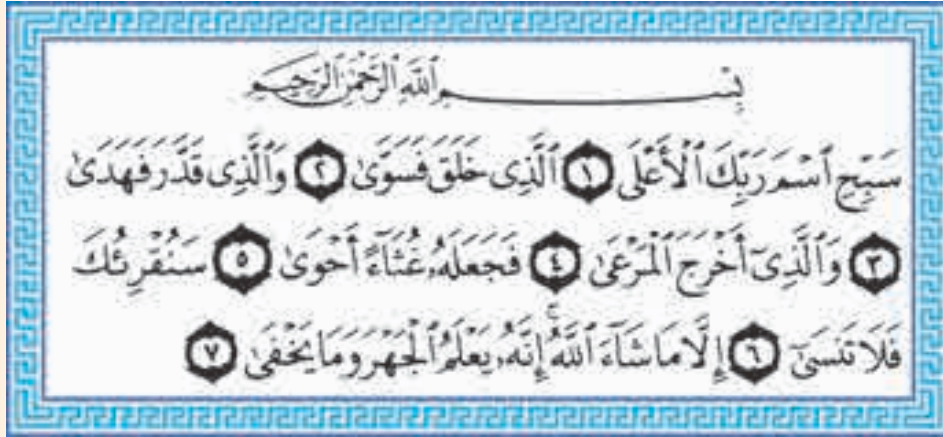 بِسْمِ ٱللَّهِ ٱلرَّحْمَٰنِ ٱلرَّحِيمِ
سَبِّحِ ٱسْمَ رَبِّكَ ٱلْأَعْلَى ١ ٱلَّذِى خَلَقَ فَسَوَّىٰ ٢ وَٱلَّذِى قَدَّرَ فَهَدَىٰ
٣ وَٱلَّذِىٓ أَخْرَجَ ٱلْمَرْعَىٰ ٤ فَجَعَلَهُۥ غُثَآءً أَحْوَىٰ ٥ سَنُقْرِئُكَ
فَلَا تَنسَىٰٓ ٦ إِلَّا مَا شَآءَ ٱللَّهُ ۚ إِنَّهُۥ يَعْلَمُ ٱلْجَهْرَ وَمَا يَخْفَىٰ ٧